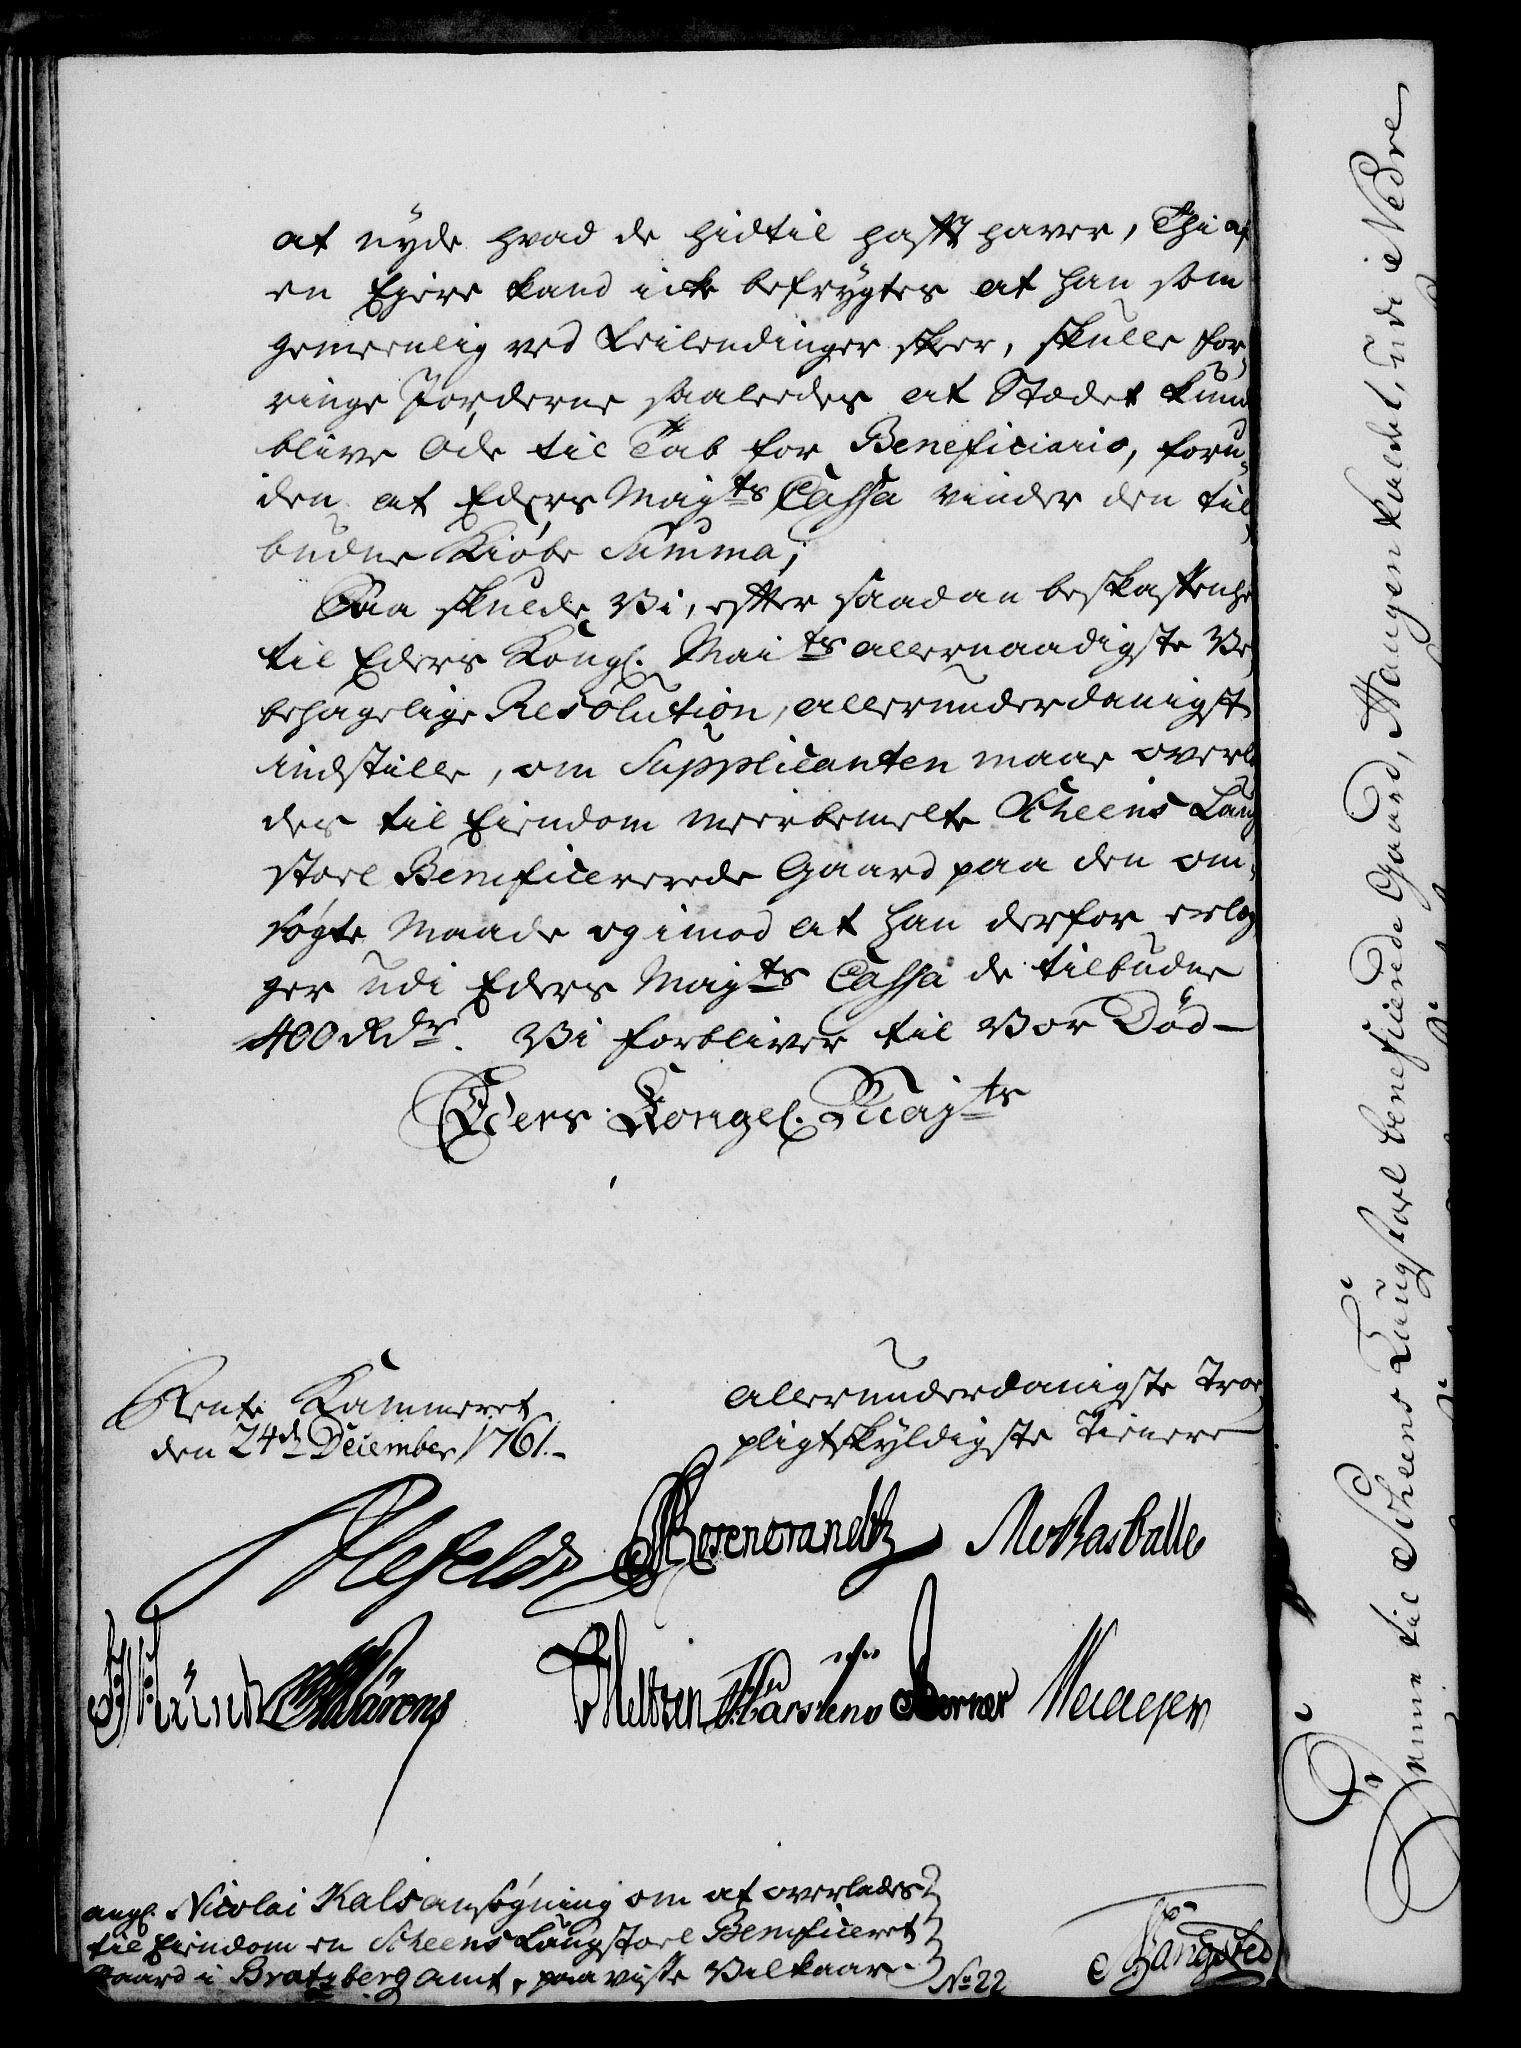 at nyde hvad de hidtil hafft haver, Thi af
en Ejere kand icke befrygtes at han som
gemeenlig ved Leilendinger skeer, skulle for,
ringe Jorderne saaledes at Stædet kund
blive Øde til Tab for Beneficiario, foru,
den at Eders Majts Cassa vinder den til,
budne Kiøbe Summa;
Saa skulde Vi, efter saadan beskaffenhe
til Eders Kongl. Maits allernaadigste Vel
behagelige Resolution, allerunderdanigst
indstille, om Supplicanten maae overla
des til Eiendom meerbemelte Scheens Laug
stoel Beneficererede Gaard paa den om,
søgte Maade og imod at han derfor erleg
ger udi Eders Majts Cassa de tilbudne
400 Rdr. Vi forbliver til Vor Død
Eders Kongel. Majts
Rente Kammeret
den 24de December 1761.
allerunderdanigste Troe
pligtskyldigste Tienere
Ahlefeldt Rosencrandtz
Holtzen Karstens Berner
angl. Nicolai Kals ansøgning om at overlades
til Eiendom en Scheens Laugstoel Beneficeret
Gaard i Bratzberg amt, paa visse Vilkaar.
No 22
Bangsted
Denne til Scheens Laugstoel beneficerede Gaard, Haugen kaldet, udi Nedre